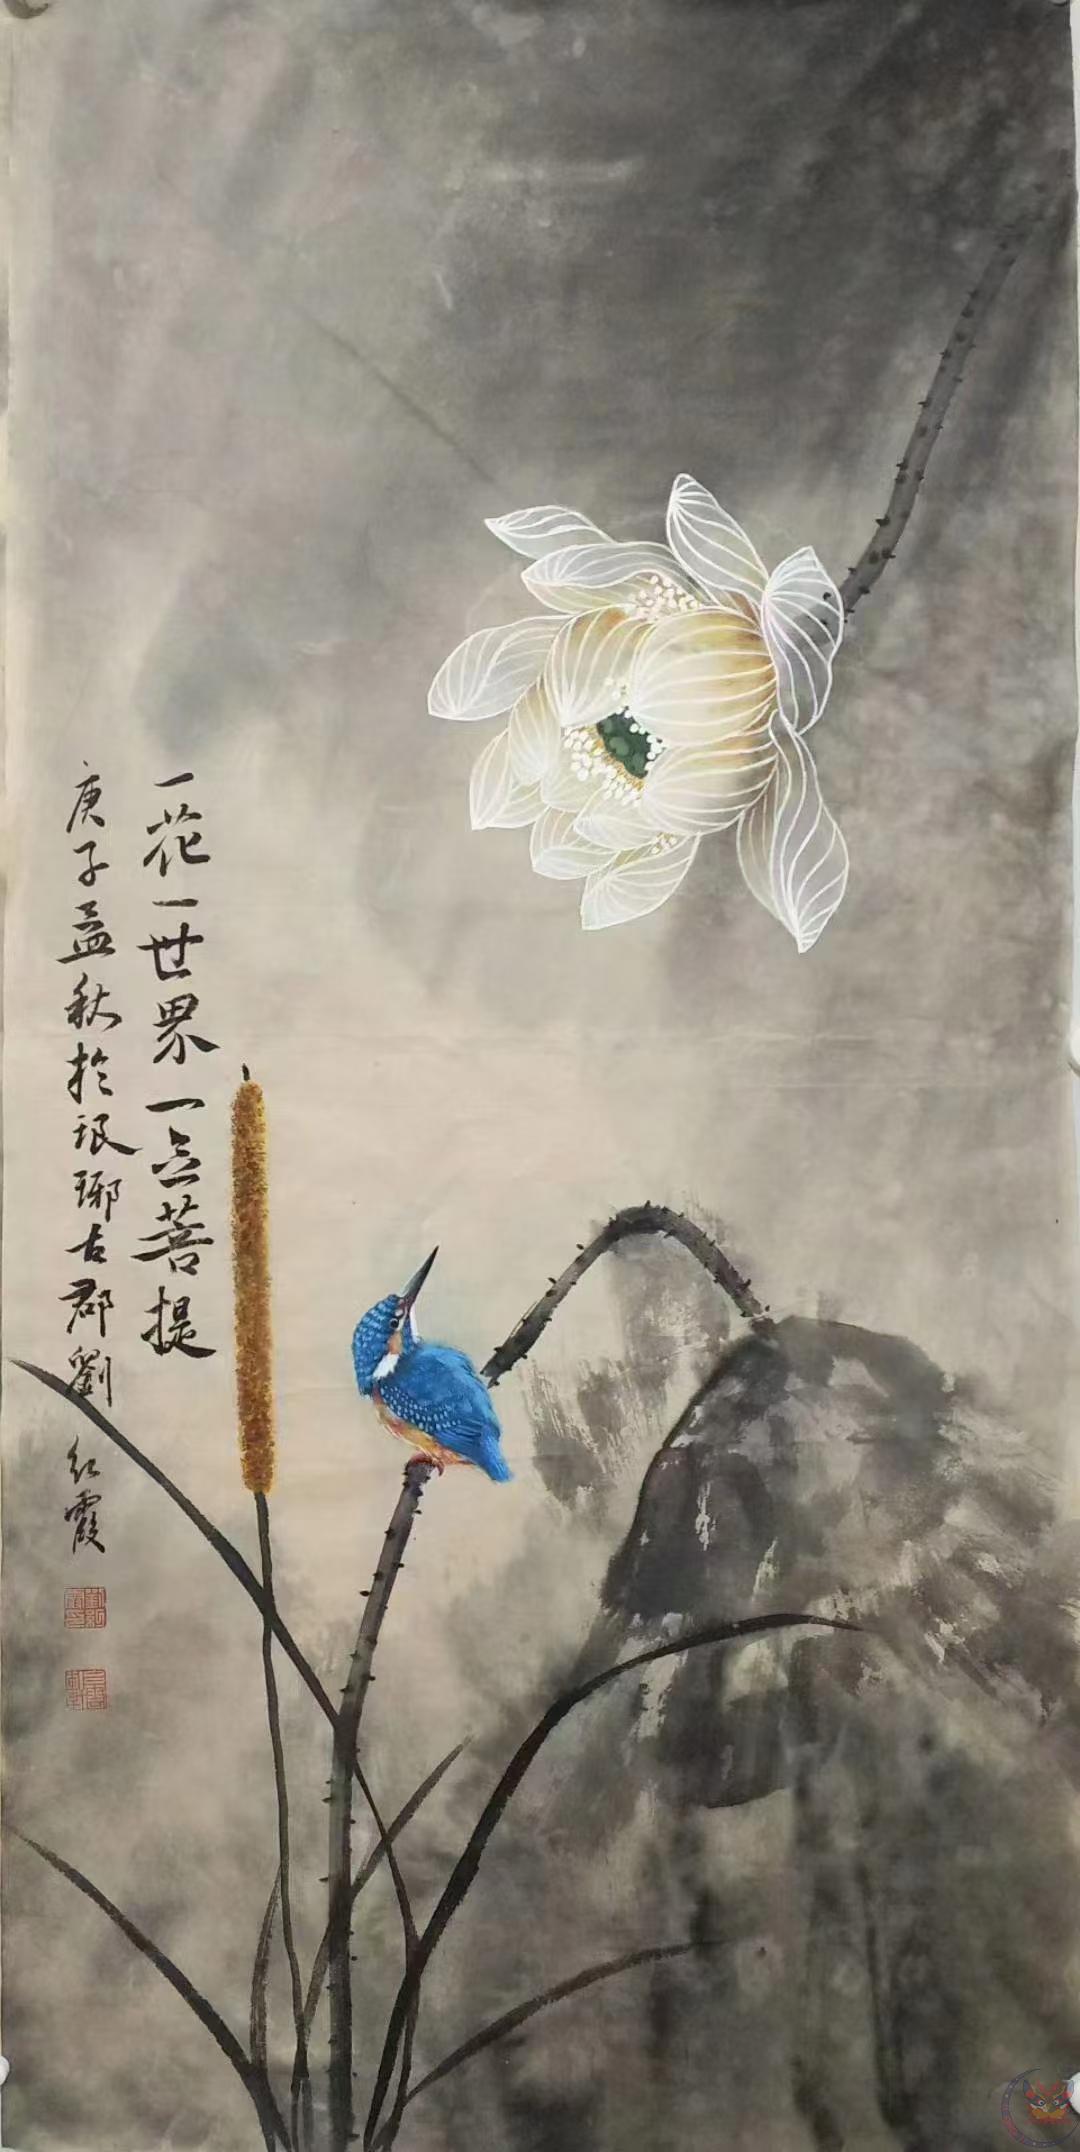 一花一世界一念菩提
庚子孟秋於琅琊古郡劉红霞